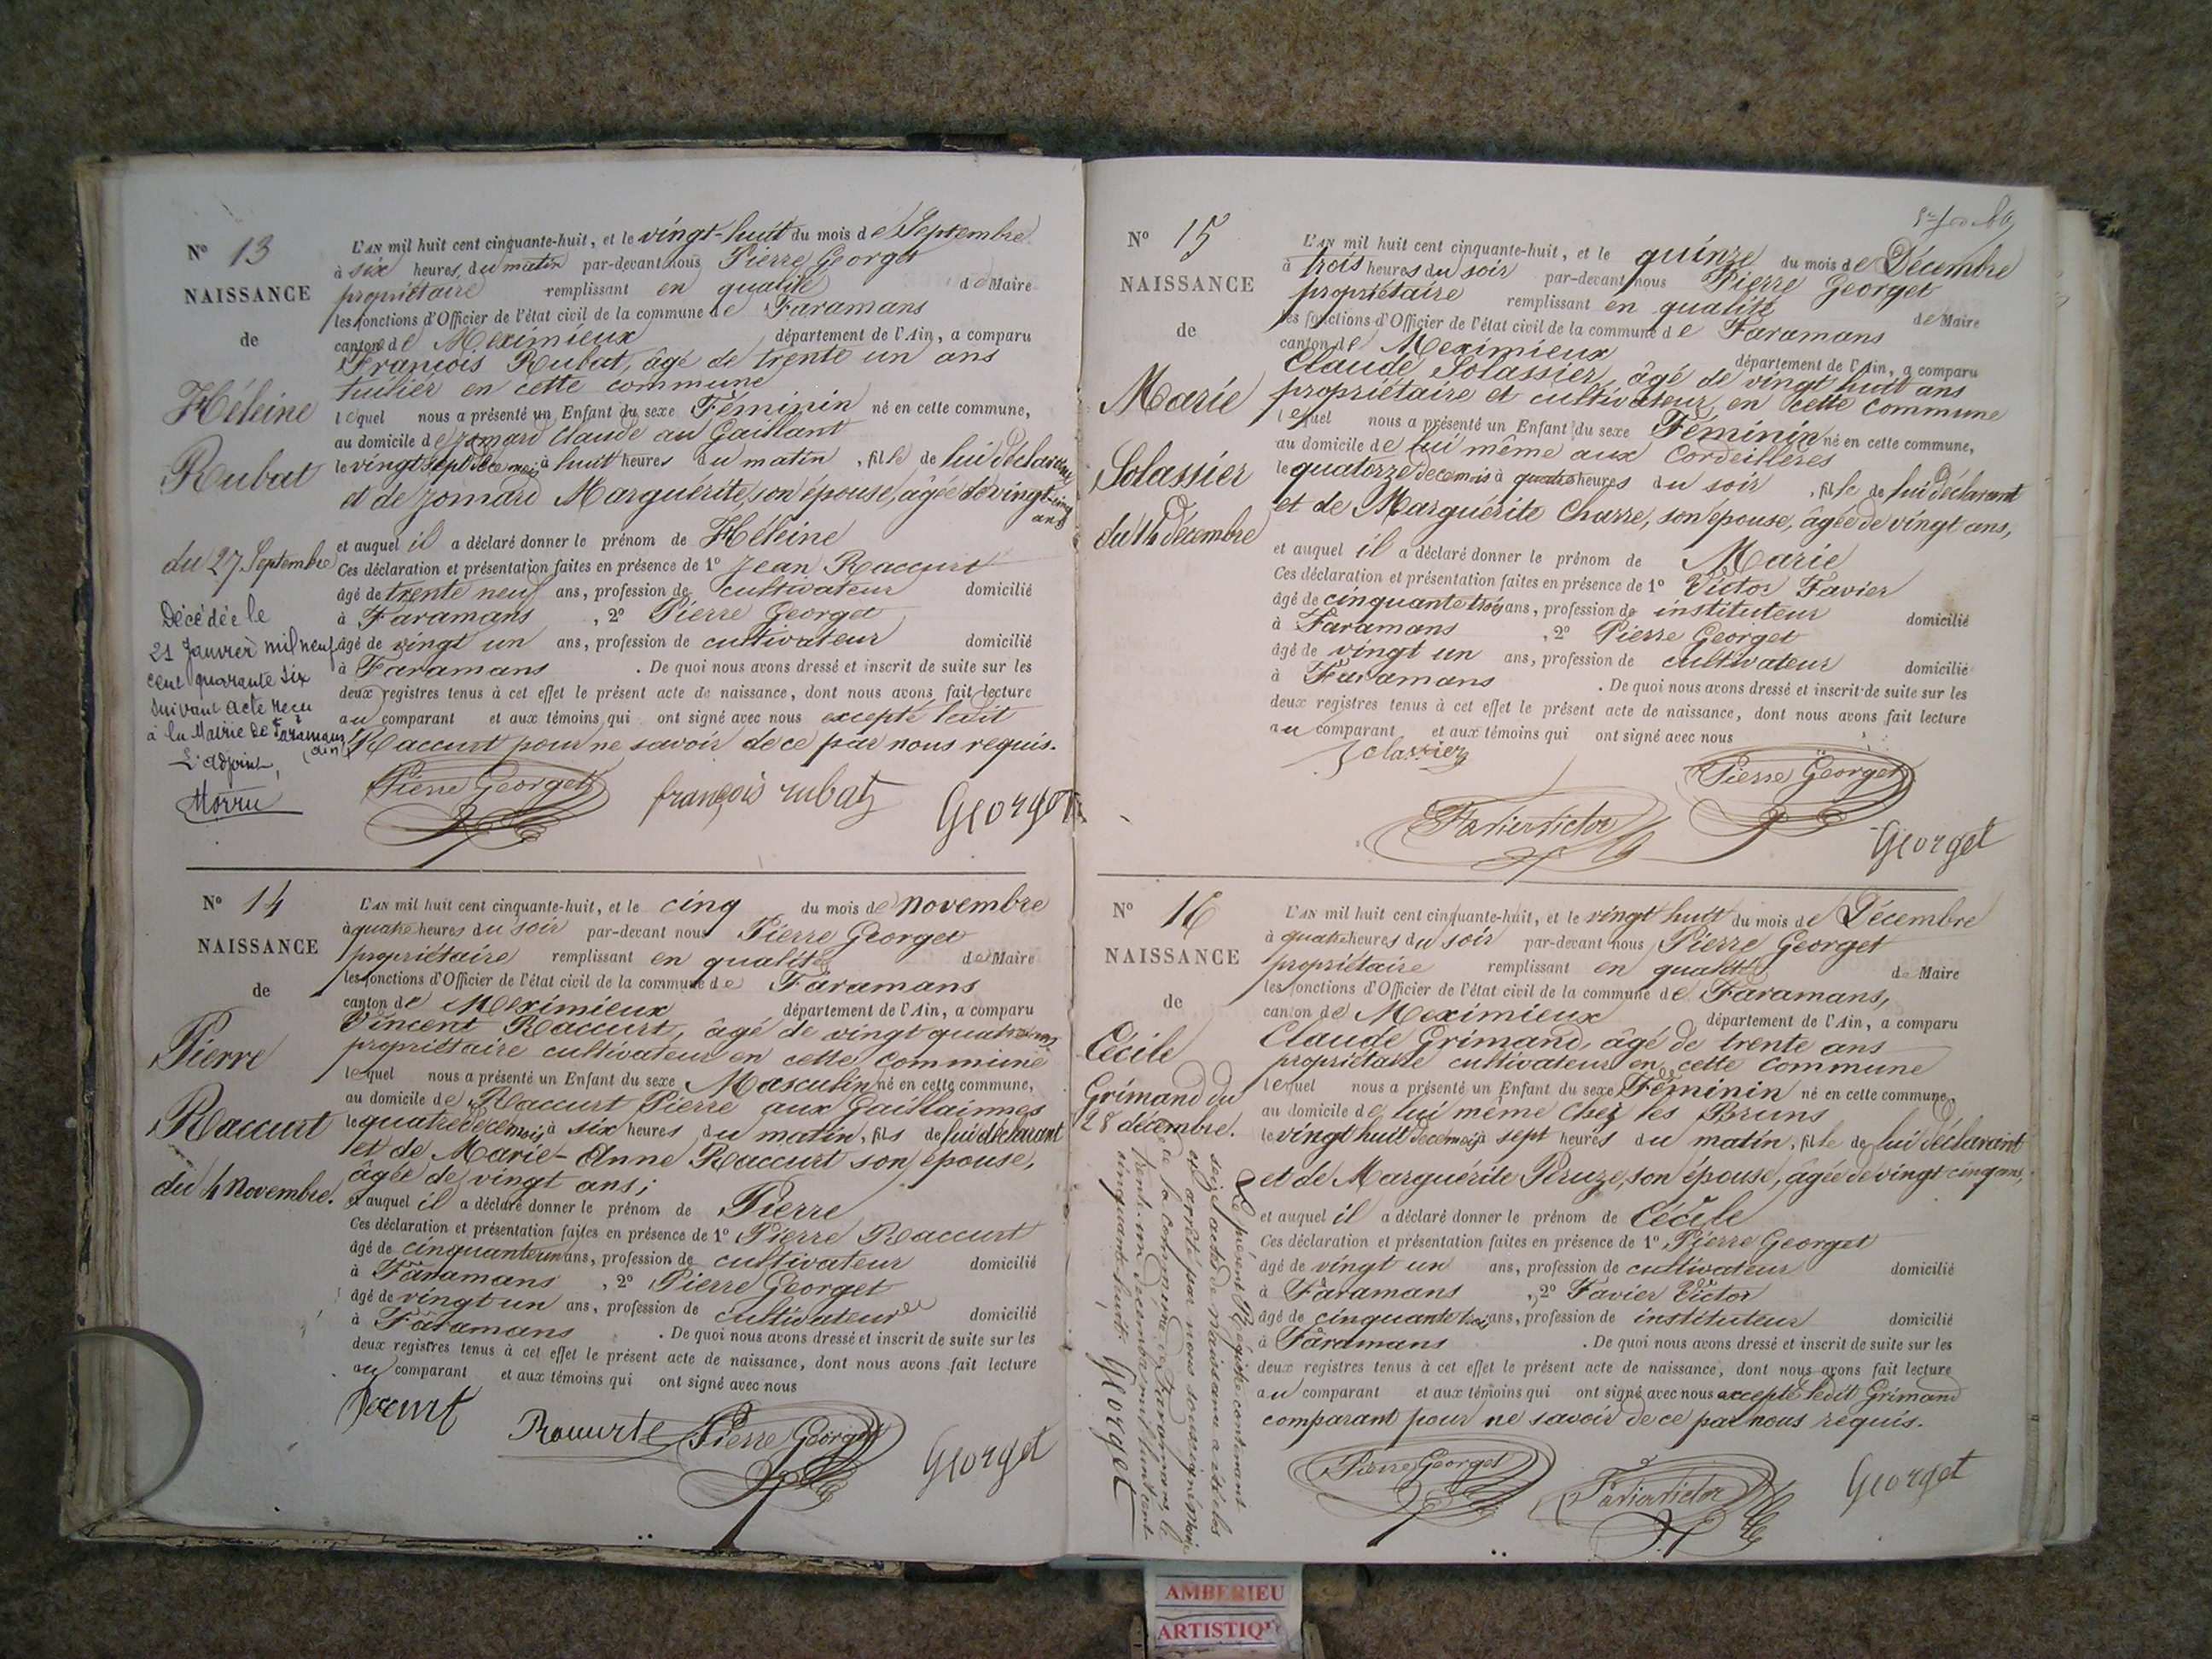 N° 13
NAISSANCE
de
Héleine
Rubat
du 27 Septembre
Décédée le
21 Janvier mil neuf
cent quarante six
suivant acte reçu
à la Mairie de Faramans
(Ain)
L'adjoint,
L'AN mil huit cent cinquante-huit, et le vingt-huit du mois de Septembre
à six heures, du matin par-devant nous Pierre Georget
propriétaire remplissant en qualité de Maire
les fonctions d'Officier de l'état civil de la commune de Faramans
canton de Meximieux département de l'Ain, a comparu
François Rubat, âgé de trente un ans
tuilier en cette commune
lequel nous a présenté un Enfant du sexe Féminin né en cette commune,
au domicile de Jomard Claude au Gaillant
le vingt sept de ce mois à huit heures du matin, fille de lui déclarant
et de Jomard Marguérite, son épouse, âgée de vingt-cinq
ans
et auquel il a déclaré donner le prénom de Héleine
Ces déclaration et présentation faites en présence de 1° Jean Raccurt
âgé de trente neuf ans, profession de cultivateur domicilié
à Faramans , 2° Pierre Georget
âgé de vingt un ans, profession de cultivateur domicilié
à Faramans . De quoi nous avons dressé et inscrit de suite sur les
deux registres tenus à cet effet le présent acte de naissance, dont nous avons fait lecture
au comparant et aux témoins qui ont signé avec nous excepté ledit
Raccurt pour ne savoir de ce par nous requis.
Pierre Georget françois rubat Georget
N° 14
NAISSANCE
de
Pierre
Raccurt
du 4 Novembre.
L'AN mil huit cent cinquante-huit, et le cinq du mois de Novembre
à quatre heures du soir par-devant nous Pierre Georget
propriétaire remplissant en qualité de Maire
les fonctions d'Officier de l'état civil de la commune de Faramans
canton de Meximieux département de l'Ain, a comparu
Vincent Raccurt, âgé de vingt quatre ans
propriétaire cultivateur en cette commune
lequel nous a présenté un Enfant du sexe Masculin né en cette commune,
au domicile de Raccurt Pierre aux
le quatre de ce mois à six heures du matin, fils de lui déclarant
et de Marie-Anne Raccurt son épouse,
âgée de vingt ans;
et auquel il a déclaré donner le prénom de Pierre
Ces déclaration et présentation faites en présence de 1° Pierre Raccurt
âgé de cinquante un ans, profession de cultivateur domicilié
à Faramans , 2° Pierre Georget
âgé de vingt un ans, profession de cultivateur domicilié
à Faramans . De quoi nous avons dressé et inscrit de suite sur les
deux registres tenus à cet effet le présent acte de naissance, dont nous avons fait lecture
au comparant et aux témoins qui ont signé avec nous
Pierre Georget Georget
N° 15
NAISSANCE
de
Marie
Solassier
du 14 décembre
L'AN mil huit cent cinquante-huit, et le quinze du mois de Décembre
à trois heures du soir par-devant nous Pierre Georget
propriétaire remplissant en qualité de Maire
les fonctions d'Officier de l'état civil de la commune de Faramans
canton de Meximieux département de l'Ain, a comparu
Claude Solassier, âgé de vingt huit ans
propriétaire et cultivateur en cette commune
lequel nous a présenté un Enfant du sexe Féminin né en cette commune,
au domicile de lui même aux Cordeillères
le quatorze de ce mois à quatre heures du soir , fille de lui déclarant
et de Marguérite Charre, son épouse, âgée de vingt ans,
et auquel il a déclaré donner le prénom de Marie
Ces déclaration et présentation faites en présence de 1° Victor Favier
âgé de cinquante trois ans, profession de instituteur domicilié
à Faramans , 2° Pierre Georget
âgé de vingt un ans, profession de cultivateur domicilié
à Faramans . De quoi nous avons dressé et inscrit de suite sur les
deux registres tenus à cet effet le présent acte de naissance, dont nous avons fait lecture
au comparant et aux témoins qui ont signé avec nous
Solassier
Pierre Georget
Favier victor
Georget
N° 16
NAISSANCE
de
Cécile
Grimand du
28 décembre.
L'AN mil huit cent cinquante-huit, et le vingt huit du mois de Décembre
à quatre heures du soir par-devant nous Pierre Georget
propriétaire remplissant en qualité de Maire
les fonctions d'Officier de l'état civil de la commune de Faramans,
canton de Meximieux département de l'Ain, a comparu
Claude Grimand, âgé de trente ans
propriétaire cultivateur en cette commune
lequel nous a présenté un Enfant du sexe Féminin né en cette commune,
au domicile de lui même chez les Bruns
le vingt huit de ce mois à sept heures du matin, fille de lui déclarant
et de Marguérite Péruze, son épouse, âgée de vingt cinq ans,
et auquel il a déclaré donner le prénom de Cécile
Ces déclaration et présentation faites en présence de 1° Pierre Georget
âgé de vingt un ans, profession de cultivateur domicilié
à Faramans , 2° Favier Victor
âgé de cinquante trois ans, profession de instituteur domicilié
à Faramans . De quoi nous avons dressé et inscrit de suite sur les
deux registres tenus à cet effet le présent acte de naissance, dont nous avons fait lecture
au comparant et aux témoins qui ont signé avec nous excepté ledit Grimand
comparant pour ne savoir de ce par nous requis.
Pierre Georget Favier victor Georget
Le présent Régistre contenant
seize actes de naissance a été clos
et arrêté par nous soussigné Maire
de la commune de Faramans, le
trente-un décembre mil huit cent
cinquante-huit. Georget
AMBERIEU
ARTISTIQU